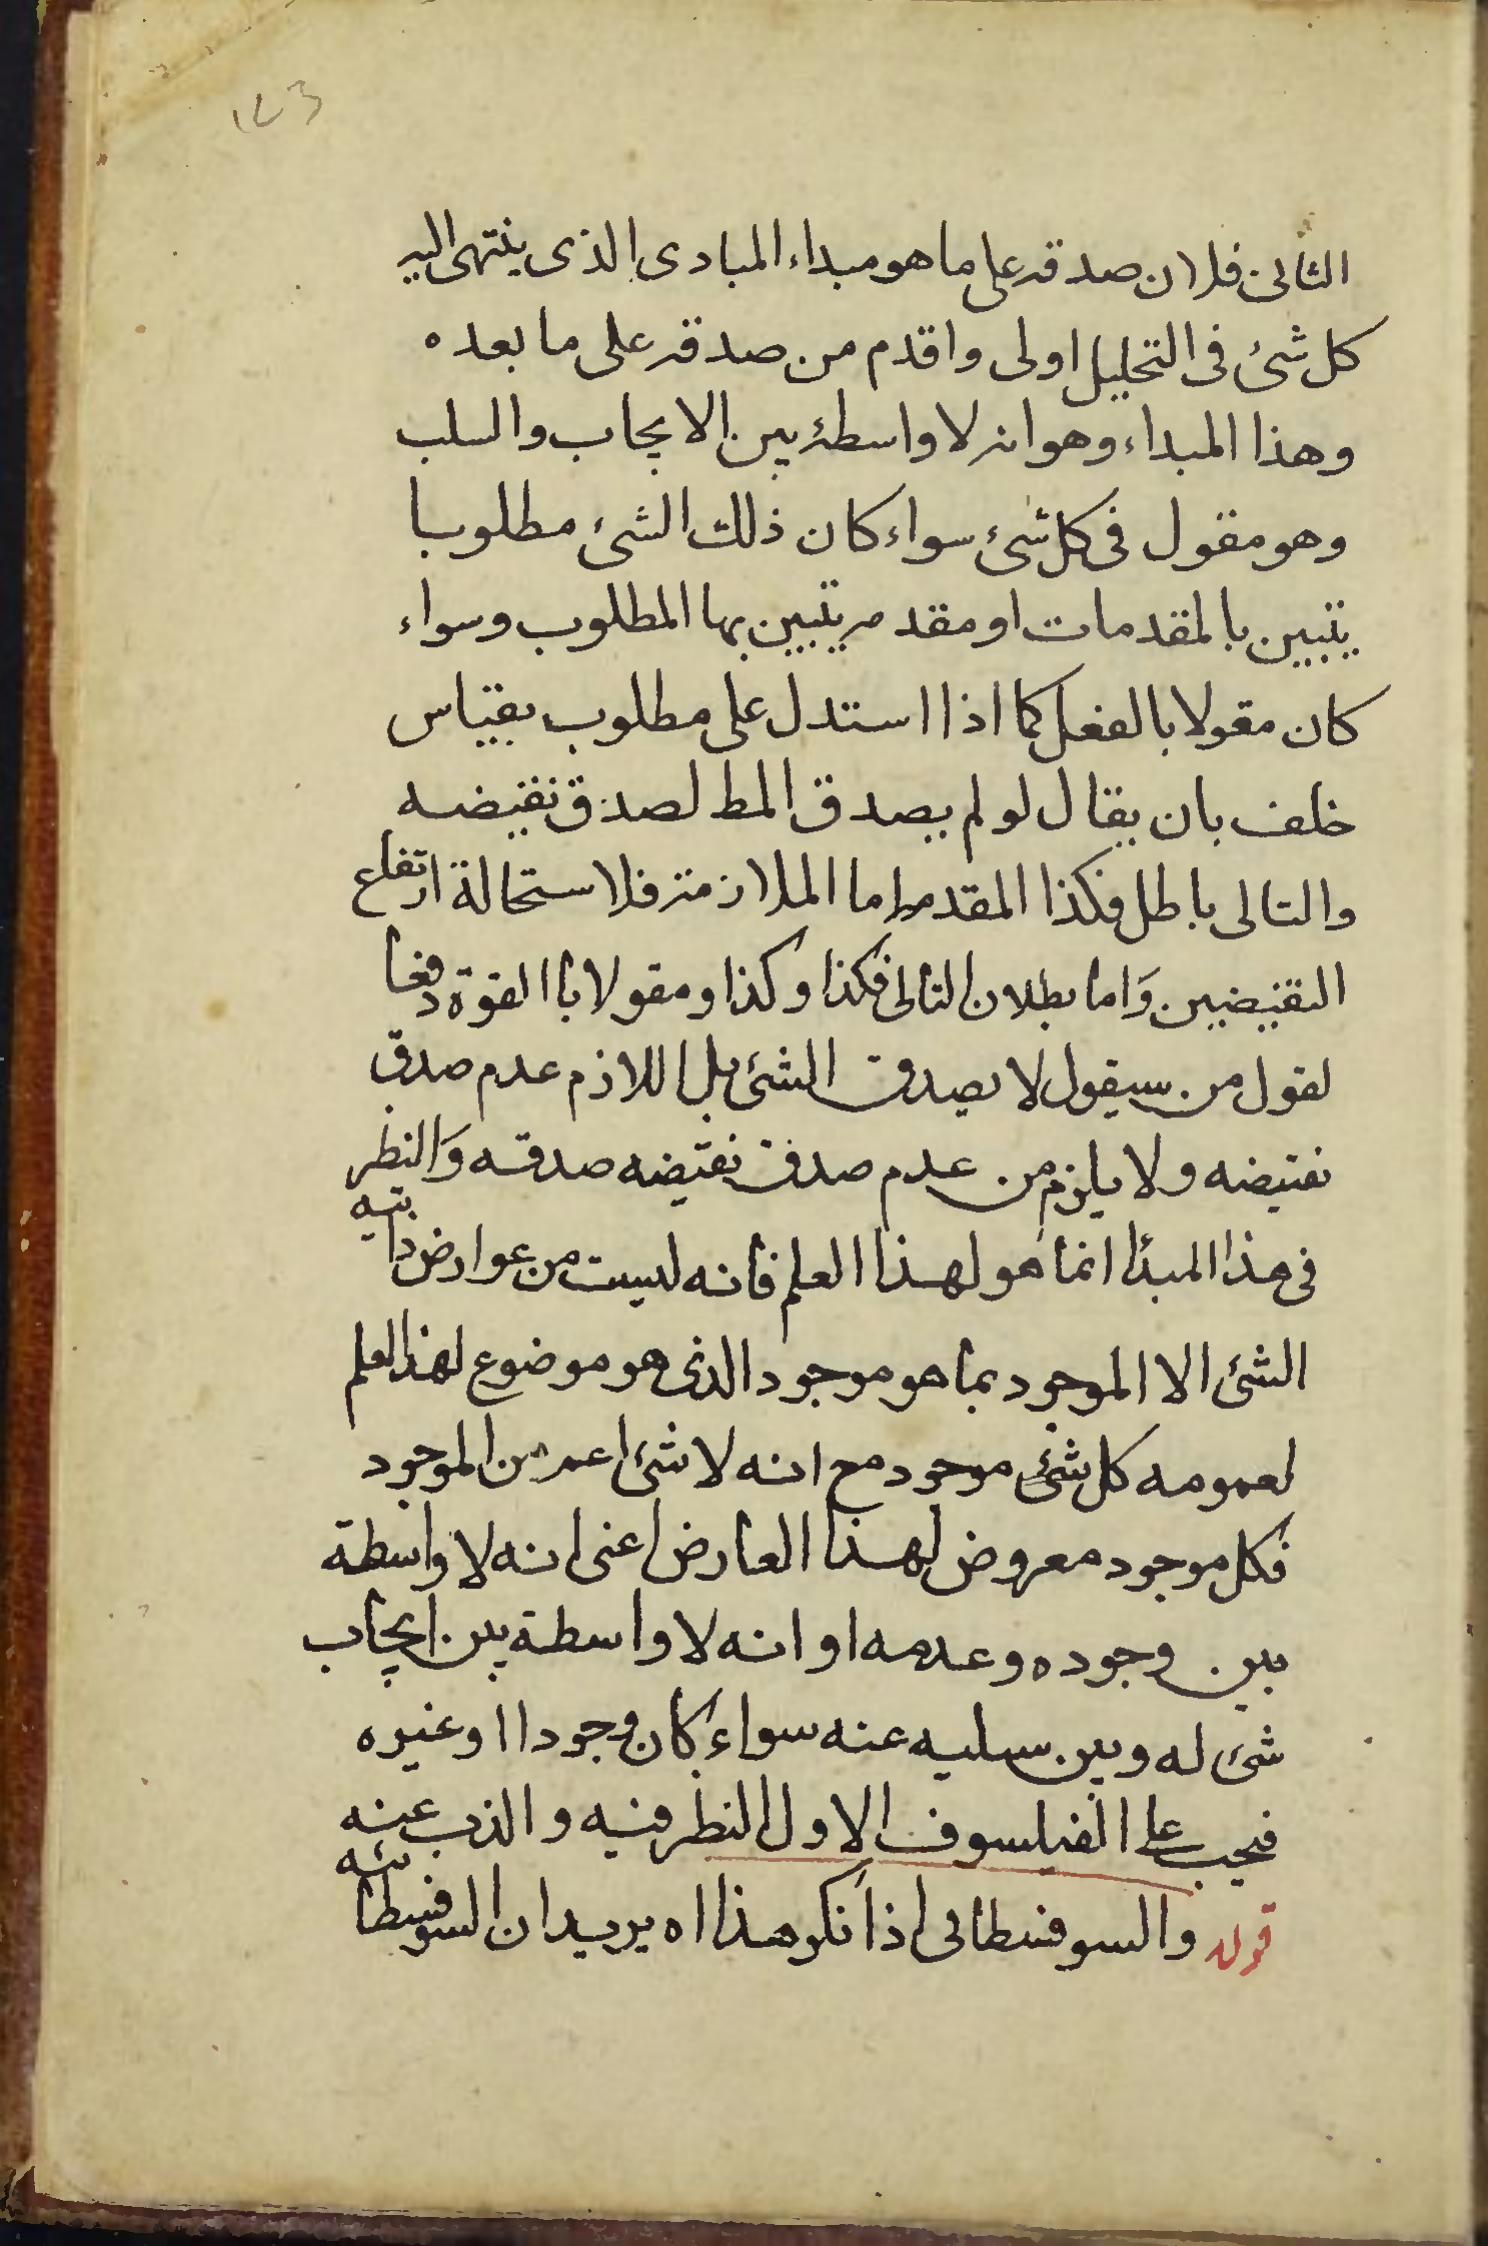 الثانى فلان صدقه على ما هو مبداء المبادى الذى ينتهى اليه
كل شئ فى التحليل اولى واقدم من صدقه على ما بعده
وهذا المبداء وهو انه لا واسطة بين الايجاب والسلب
وهو مقول فى كل شئ سواء كان ذلك الشئ مطلوبا
يتبين بالمقدمات او مقدمه يتبين بها المطلوب وسواء
كان مقولا بالفعل كما اذا استدل على مطلوب بقياس
خلف بان يقال لو لم يصدق المط لصدق نقيضه
والتالى باطل فكذا المقدم اما الملازمة فلاستحالة ارتفاع
النقيضين وَاما بطلان التالى فكذا وكذا ومقولا باالقوة دفعا
لقول من سيقول لا يصدق الشئ بل اللازم عدم صدق
نقيضه ولا يلزم من عدم صدق نقيضه صدقه وَالنظر
فى هذا المبدأ انما هو لهذا العلم فانه ليست من عوارض ذاتيه
الشئ الا الموجود بما هو موجود الذى هو موضوع لهذا لعلم
لعمومه كل شئ موجود مع انه لا شئ اعم من الموجود
فكل موجود معروض لهذا العارض اعنى انه لا واسطة
بين وجوده وعدمه او انه لا واسطة بين ايجاب
شئ له وبين سلبه عنه سواء كان وجودا او غيره
فيجب على الفيلسوف الاول النظر فيه والذب عنه
قوله والسوفسطائى اذا نكر هذا اه يريد ان السوفسطائيه